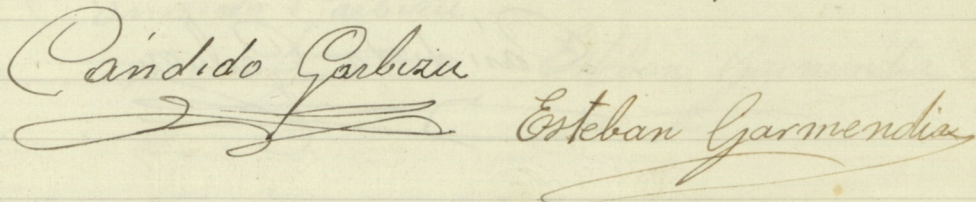 Cándido Garbizu
Esteban Garmendia